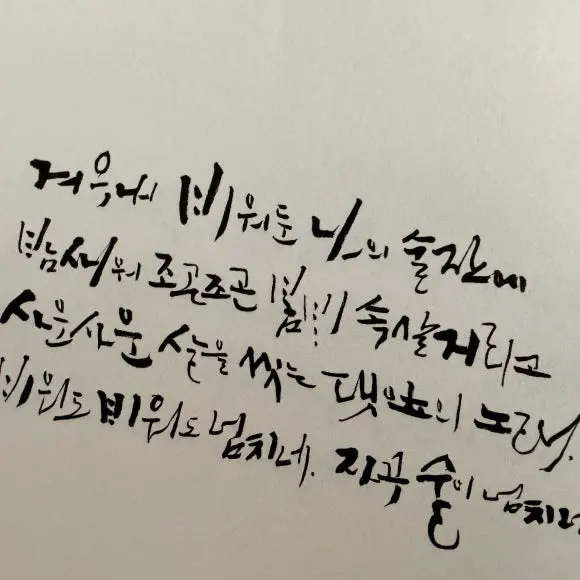 겨우내 비워둔 나의 술잔에
밤새워 조곤조곤 봄비 속살거리고
사운사운 살을 씻는 댓잎의 노래,
비워도 비워도 넘치네. 자꾹 술이 넘치네